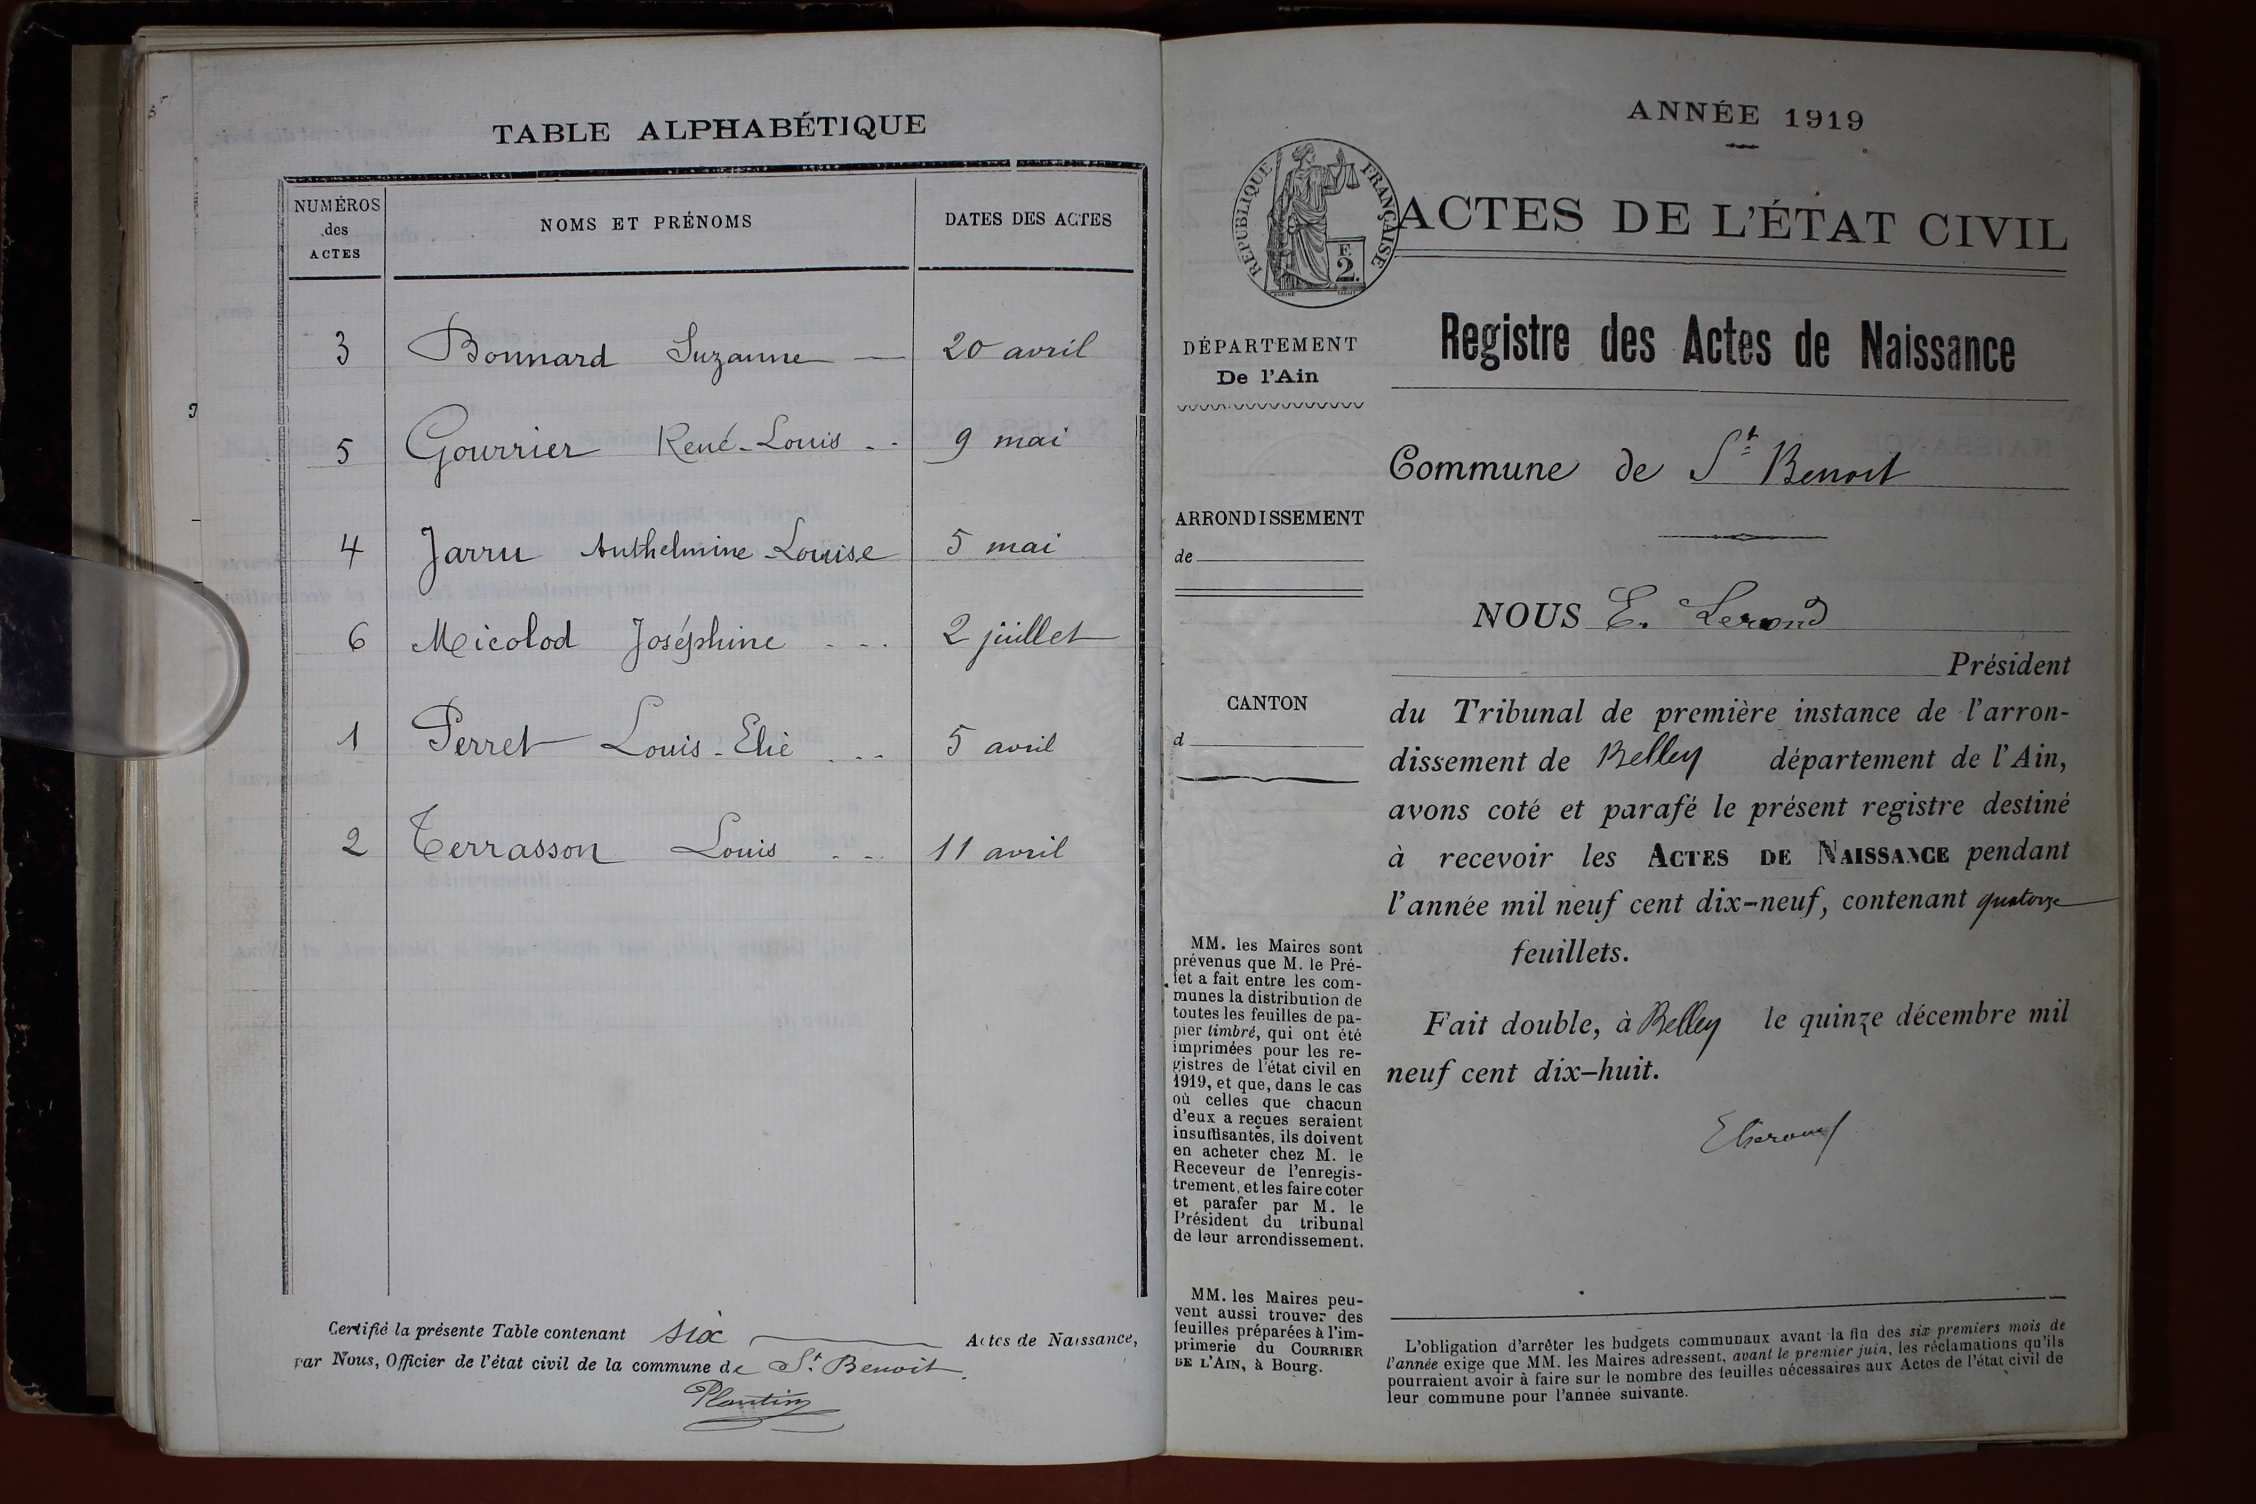 TABLE ALPHABÉTIQUE
NUMÉROS
des
ACTES
NOMS ET PRÉNOMS
DATES DES ACTES
3 Bonnard Suzanne 20 avril
5 Gourrier René-Louis 9 mai
4 Jarru Anthelmine-Louise 5 mai
6 Micolod Joséphine 2 juillet
1 Perret Louis-Elie 5 avril
2 Terrasson Louis 11 avril
Certifié la présente Table contenant six Actes de Naissance,
par Nous, Officier de l'état civil de la commune de St Benoit.
Plantin
ANNÉE 1919
RÉPUBLIQUE FRANÇAISE
F.
2.
ACTES DE L'ÉTAT CIVIL
DÉPARTEMENT
De l'Ain
ARRONDISSEMENT
de
CANTON
d
MM. les Maires sont
prévenus que M. le Pré-
fet a fait entre les com-
munes la distribution de
toutes les feuilles de pa-
pier timbré, qui ont été
imprimées pour les re-
gistres de l'état civil en
1919, et que, dans le cas
où celles que chacun
d'eux a reçues seraient
insuffisantes, ils doivent
en acheter chez M. le
Receveur de l'enregis-
trement, et les faire coter
et parafer par M. le
Président du tribunal
de leur arrondissement.
MM. les Maires peu-
vent aussi trouver des
feuilles préparées à l'im-
primerie du COURRIER
DE L'AIN, à Bourg.
Registre des Actes de Naissance
Commune de St Benoit
NOUS E. Lerond
Président
du Tribunal de première instance de l'arron-
dissement de Belley département de l'Ain,
avons coté et parafé le présent registre destiné
à recevoir les ACTES DE NAISSANCE pendant
l'année mil neuf cent dix-neuf, contenant quatorze
feuillets.
Fait double, à Belley le quinze décembre mil
neuf cent dix-huit.
L'obligation d'arrêter les budgets communaux avant la fin des six premiers mois de
l'année exige que MM. les Maires adressent, avant le premier juin, les réclamations qu'ils
pourraient avoir à faire sur le nombre des feuilles nécessaires aux Actes de l'état civil de
leur commune pour l'année suivante.